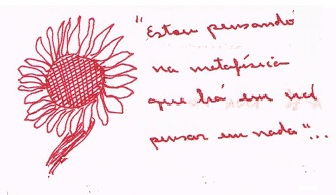 "Estou pensando
na metafísica
que há em não
pensar em nada"...